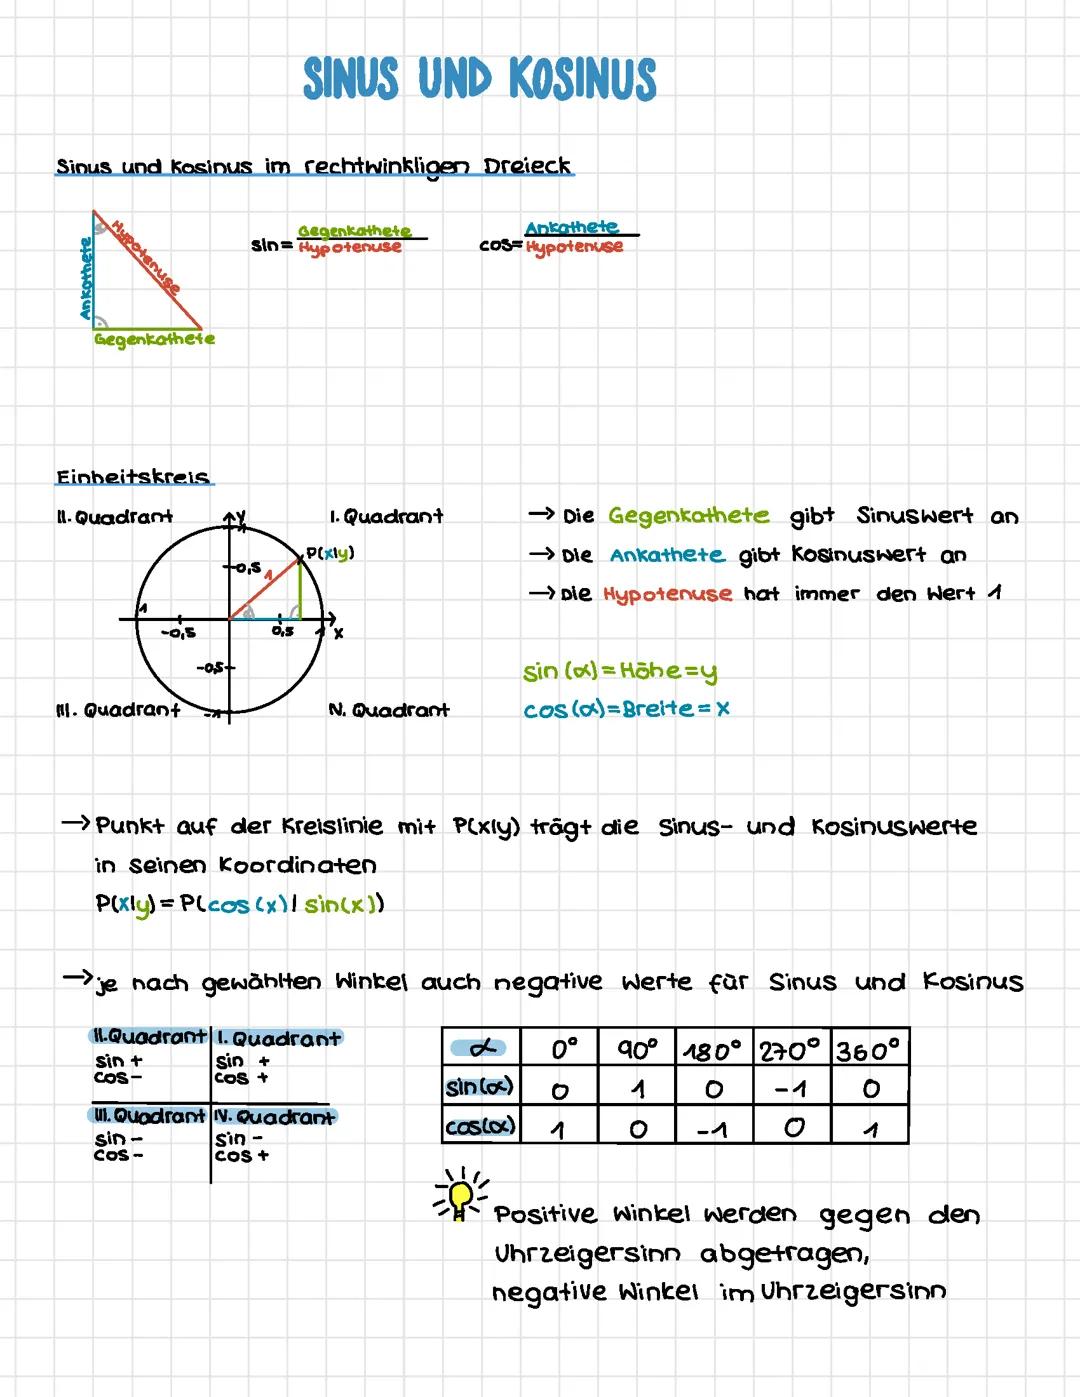 SINUS UND KOSINUS
Sinus und Kosinus im rechtwinkligen Dreieck
Ankathete
Hypotenuse
Gegenkathete
sin= Gegenkathete
Hypotenuse
cos= Ankathete
Hypotenuse
Einheitskreis
II. Quadrant
y
I. Quadrant
1
P(x|y)
0,5
1
-1
-0,5
0,5
1
x
-0,5
III. Quadrant
-1
IV. Quadrant
→ Die Gegenkathete gibt Sinuswert an
→ Die Ankathete gibt Kosinuswert an
→ Die Hypotenuse hat immer den Wert 1
sin (α) = Höhe = y
cos (α) = Breite = x
→ Punkt auf der Kreislinie mit P(x|y) trägt die Sinus- und Kosinuswerte
in seinen Koordinaten
P(x|y) = P(cos (x) | sin(x))
→ je nach gewählten Winkel auch negative Werte für Sinus und Kosinus
II. Quadrant I. Quadrant
sin + sin +
cos - cos +
III. Quadrant IV. Quadrant
sin - sin -
cos - cos +
α 0° 90° 180° 270° 360°
sin(α) 0 1 0 -1 0
cos(α) 1 0 -1 0 1
Positive Winkel werden gegen den
Uhrzeigersinn abgetragen,
negative Winkel im Uhrzeigersinn